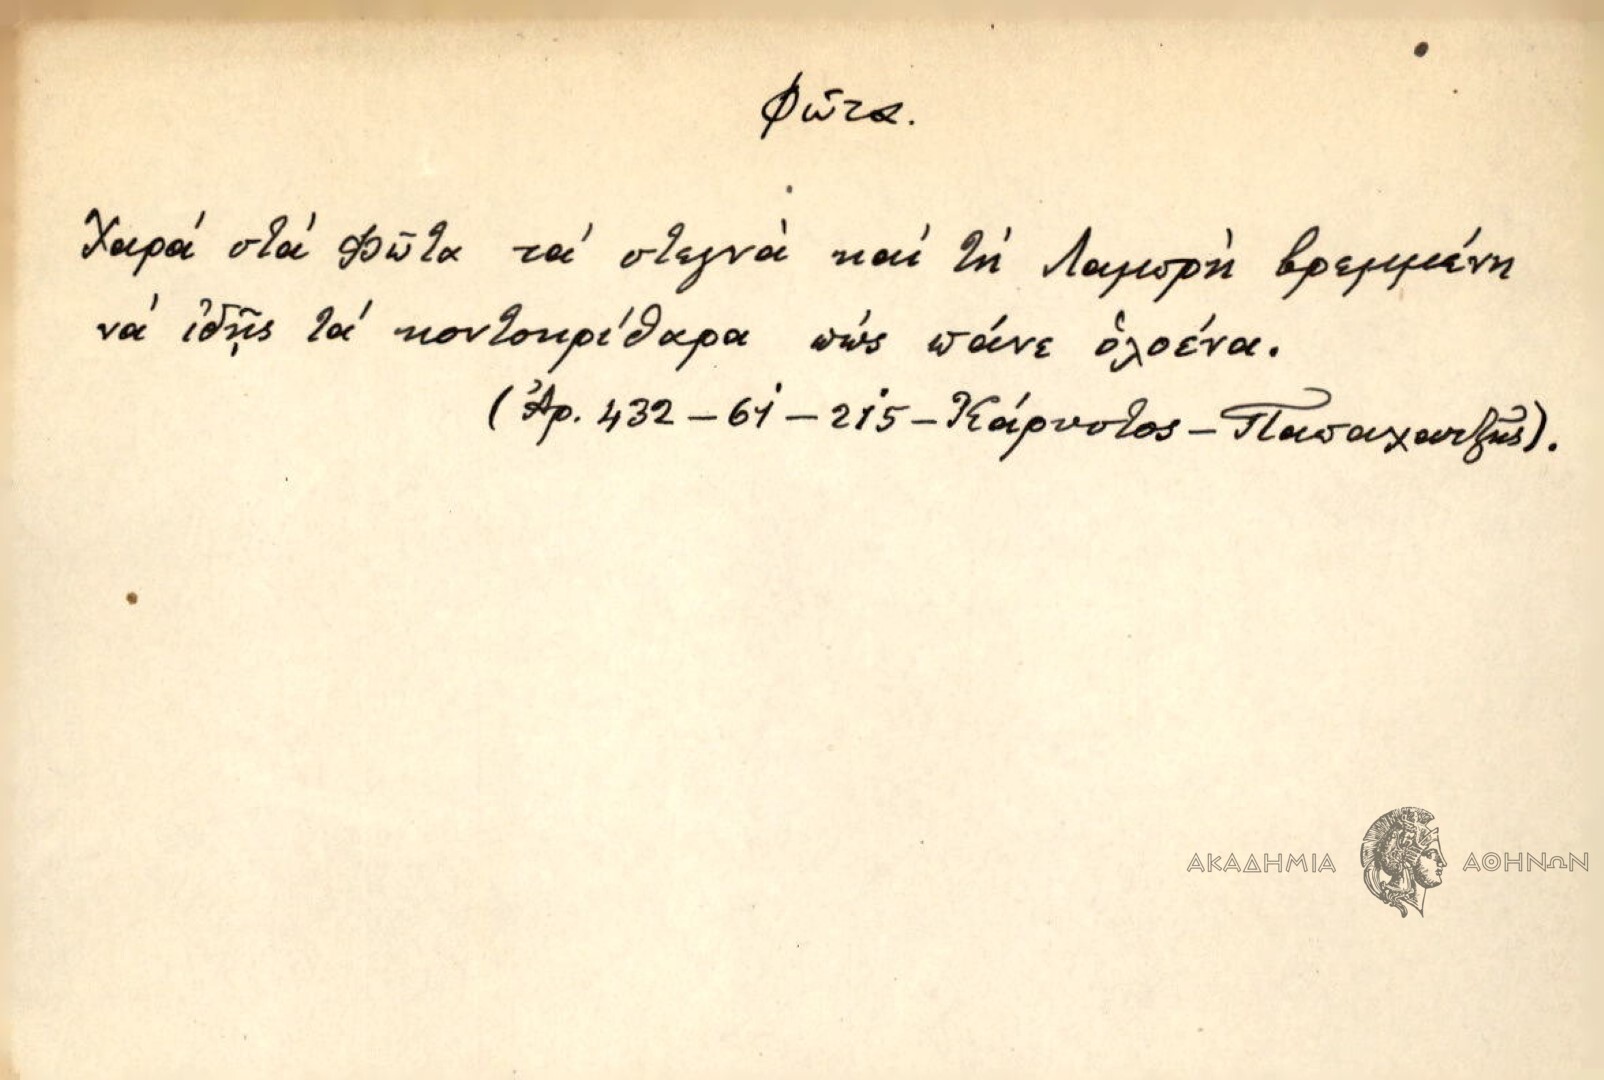 Φῶτα.
Χαρά στά Φῶτα τά στεγνὰ καί τή Λαμπρὴ βρεμμένη
νά ἰδῇς τά κοντοκρίθαρα πώς πάνε ὁλοένα.
(Ἀρ. 432 – 61 – 215 – Κάρυστος – Παπαχατζῆς).
ΑΚΑΔΗΜΙΑ ΑΘΗΝΩΝ